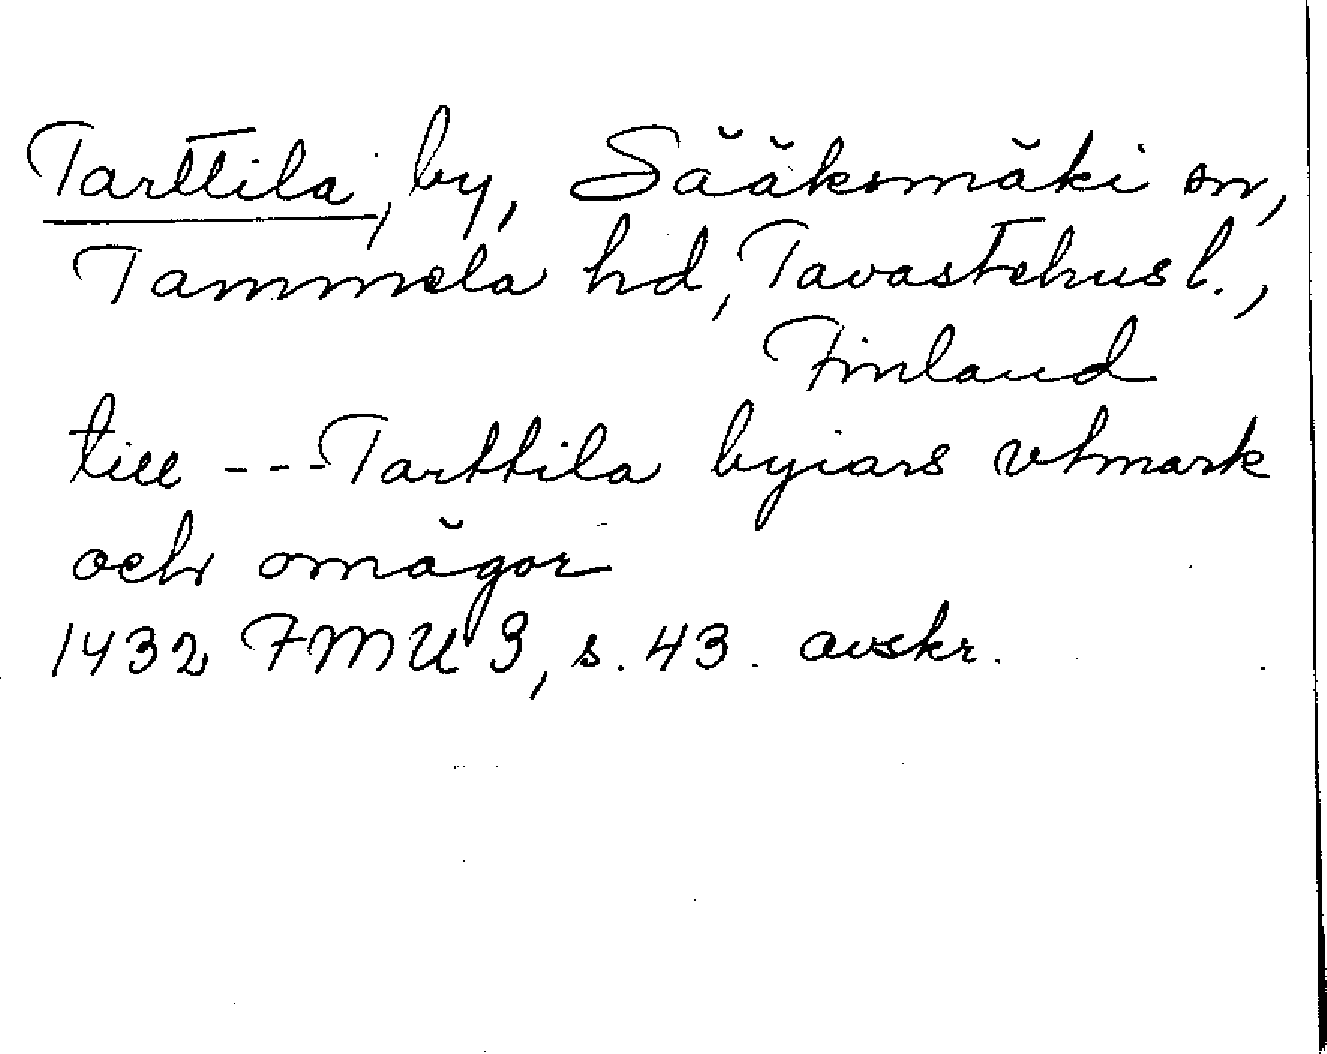 Tarttila, by, Sääksmäki sn,
Tammela hd, Tavastehus l.,
Finland
till --- Tarttila byiars vtmark
och omägor
1432 FMU 3, s. 43. avskr.